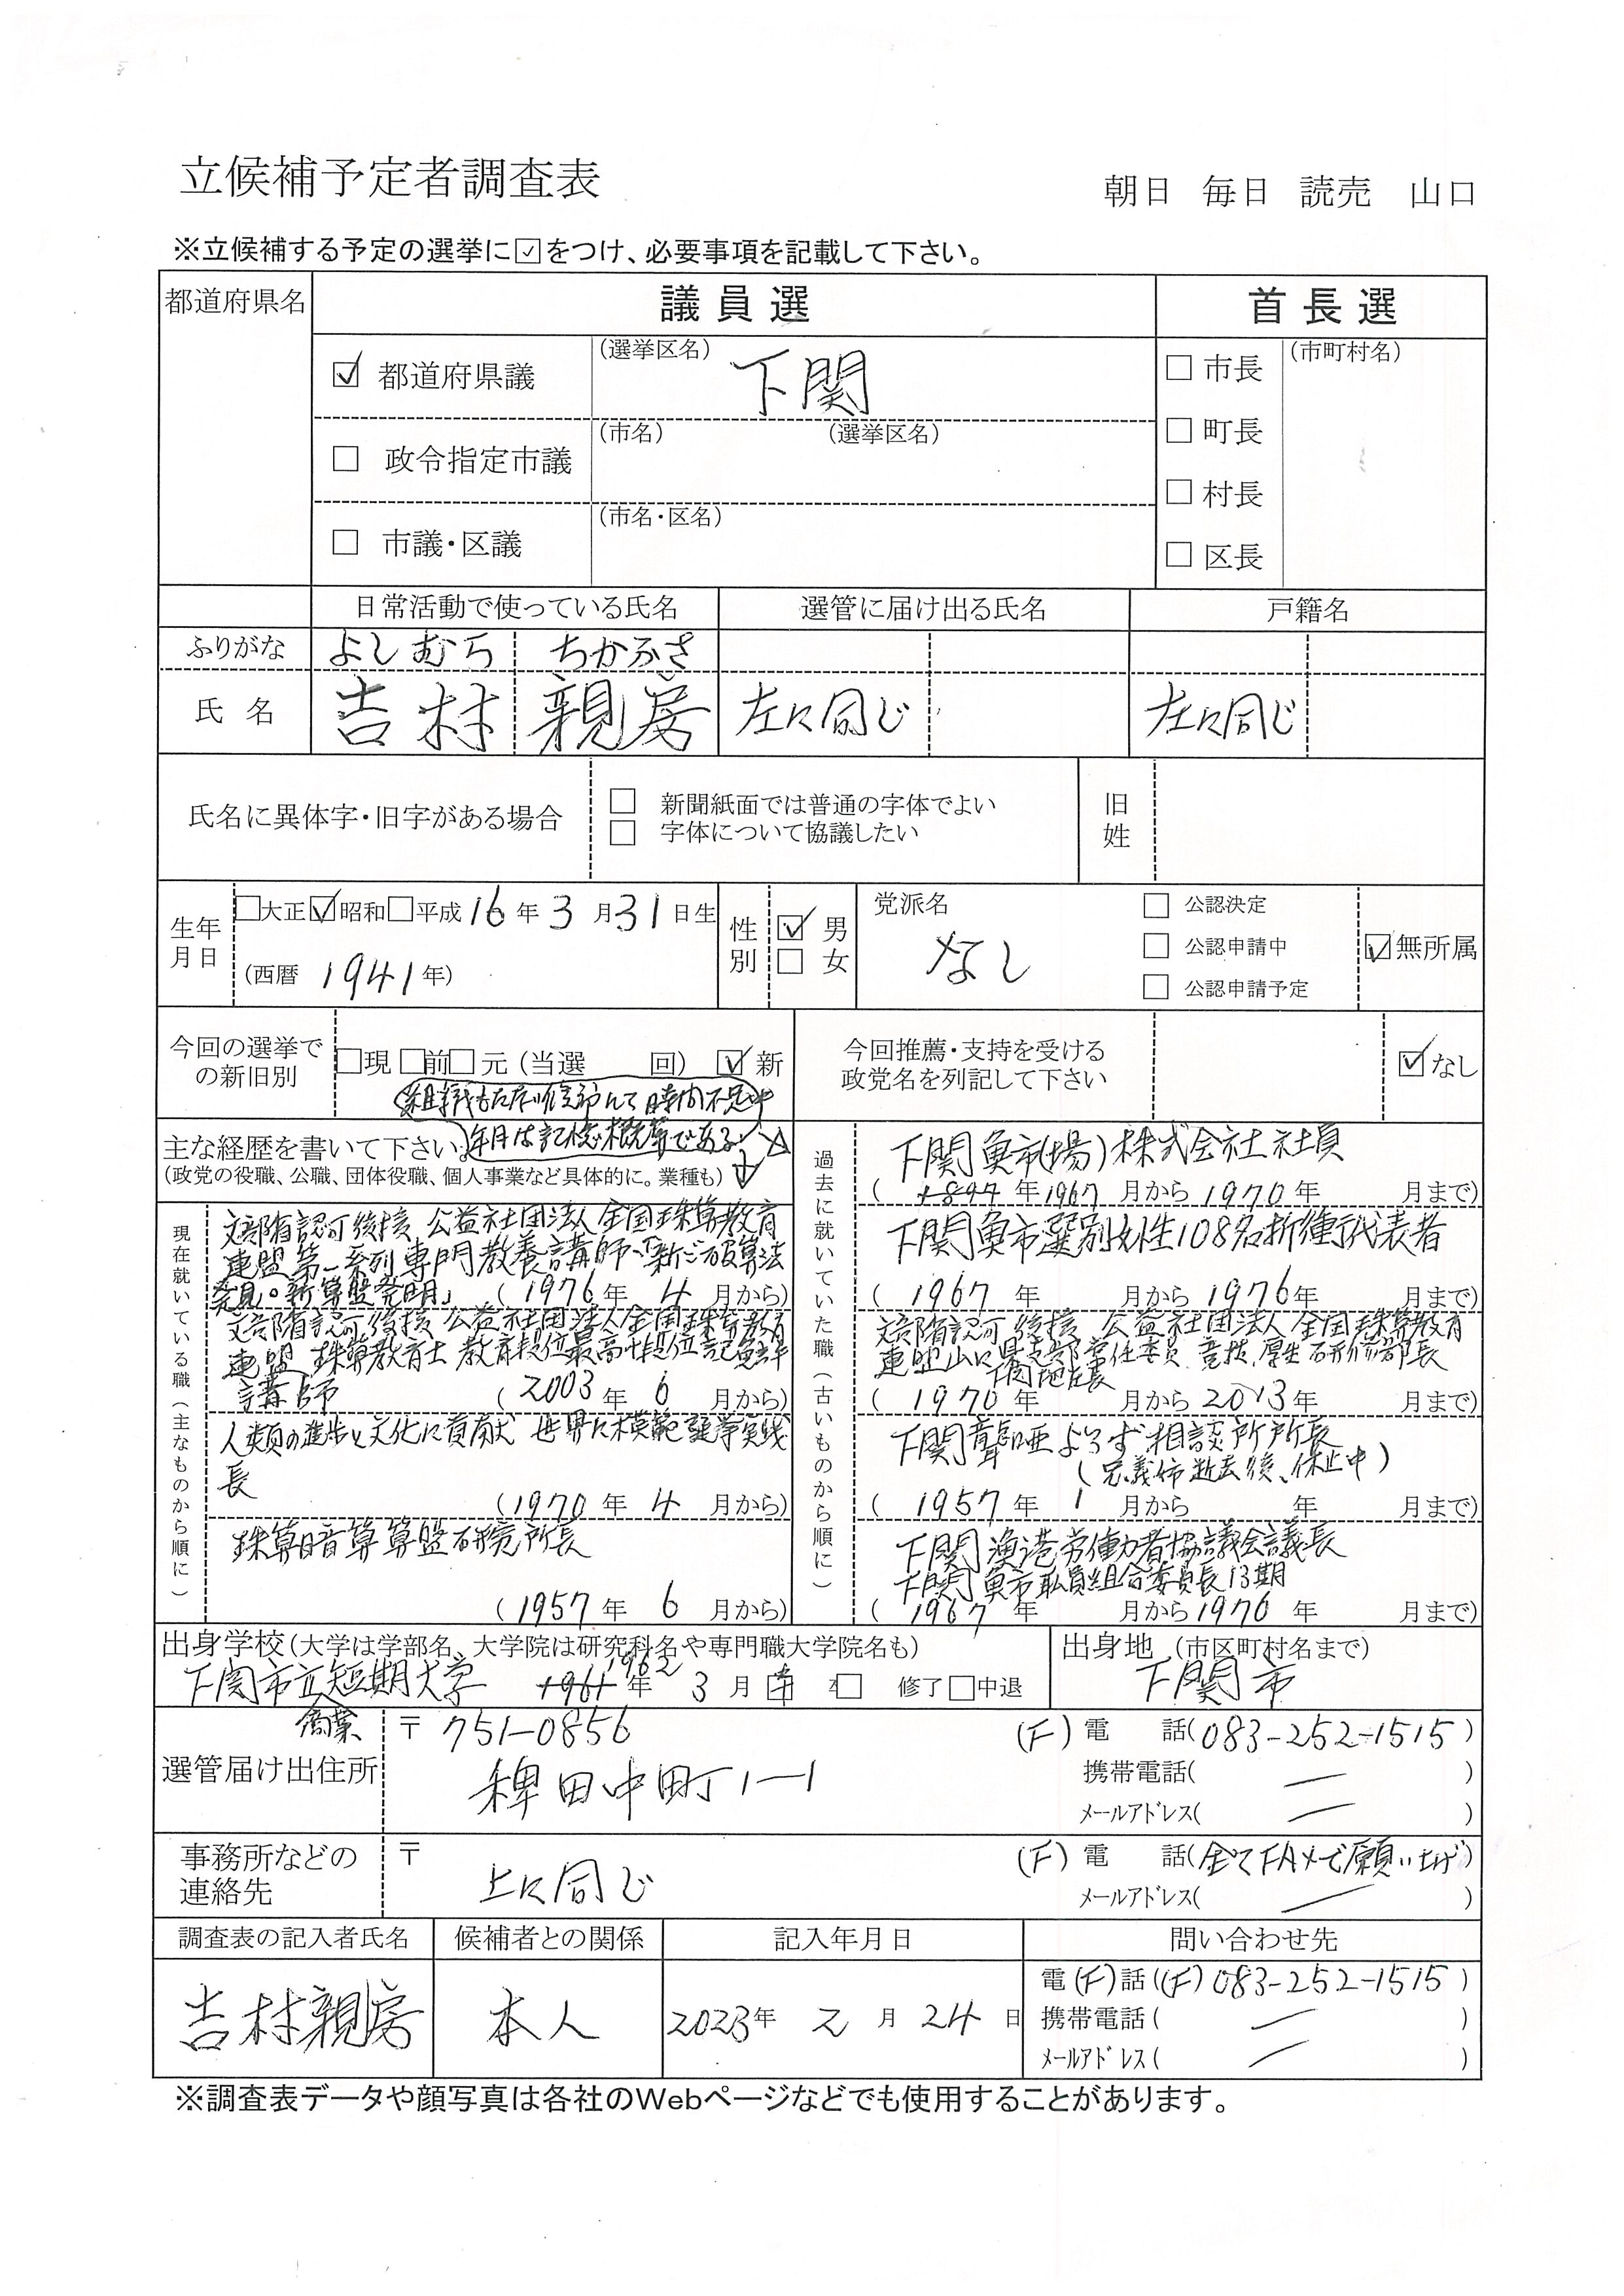 立候補予定者調査表
朝日 毎日 読売 山口
※立候補する予定の選挙に☑をつけ、必要事項を記載して下さい。
都道府県名
議員選
首長選
☑ 都道府県議
(選挙区名)
下関
□ 政令指定市議
(市名) (選挙区名)
□ 市議・区議
(市名・区名)
□ 市長
(市町村名)
□ 町長
□ 村長
□ 区長
日常活動で使っている氏名
選管に届け出る氏名
戸籍名
ふりがな よしむら ちかふさ
氏名 吉村 親房 左に同じ 左に同じ
氏名に異体字・旧字がある場合
□ 新聞紙面では普通の字体でよい
□ 字体について協議したい
旧姓
生年月日
□大正☑昭和□平成 16年 3月31日生
(西暦 1941年)
性別
☑ 男
□ 女
党派名
なし
□ 公認決定
□ 公認申請中
□ 公認申請予定
☑無所属
今回の選挙での新旧別
□現 □前□元(当選 回) ☑新
今回推薦・支持を受ける
政党名を列記して下さい
☑なし
時間不足中
主な経歴を書いて下さい。
年月は記憶概算である
(政党の役職、公職、団体役職、個人事業など具体的に。業種も)
現在就いている職(主なものから順に)
文部省認可後援 公益社団法人全国珠算教育
連盟第一系列専門教養講師・「新
発見・新算盤発明」 (1976年 4月から)
文部省認可後援 公益社団法人全国珠算教育
連盟 珠算教育士 教育段位最高
講師 (2003年 6月から)
人類の進歩と文化に貢献 世界に模範選挙実践
長
(1970年 4月から)
珠算暗算算盤研究所長
(1957年 6月から)
過去に就いていた職(古いものから順に)
下関魚市(場)株式会社社員
( 年1967月から1970年 月まで)
下関魚市選別女性108名折衝代表者
(1967年 月から1976年 月まで)
文部省認可後援 公益社団法人全国珠算教育
連盟山口県支部常任委員 厚生研修部長
(1970年 月から2013年 月まで)
下関聾唖よろず相談所所長
(忠義姉逝去後、休止中)
(1957年 1月から 年 月まで)
下関漁港労働者協議会議長
下関魚市職員組合委員長13期
(1967年 月から1970年 月まで)
出身学校(大学は学部名、大学院は研究科名や専門職大学院名も)
下関市立短期大学 1962年 3月 修了□中退
商業
出身地 (市区町村名まで)
下関市
選管届け出住所
〒 751-0856
稗田中町1-1
(F)電 話(083-252-1515)
携帯電話( ー )
メールアドレス( ー )
事務所などの連絡先
〒
上に同じ
(F)電 話(全てFAXで願い上げ)
メールアドレス( ー )
調査表の記入者氏名
候補者との関係
記入年月日
問い合わせ先
吉村親房
本人
2023年 2月 24日
電(F)話((F)083-252-1515)
携帯電話( ー )
メールアドレス( ー )
※調査表データや顔写真は各社のWebページなどでも使用することがあります。